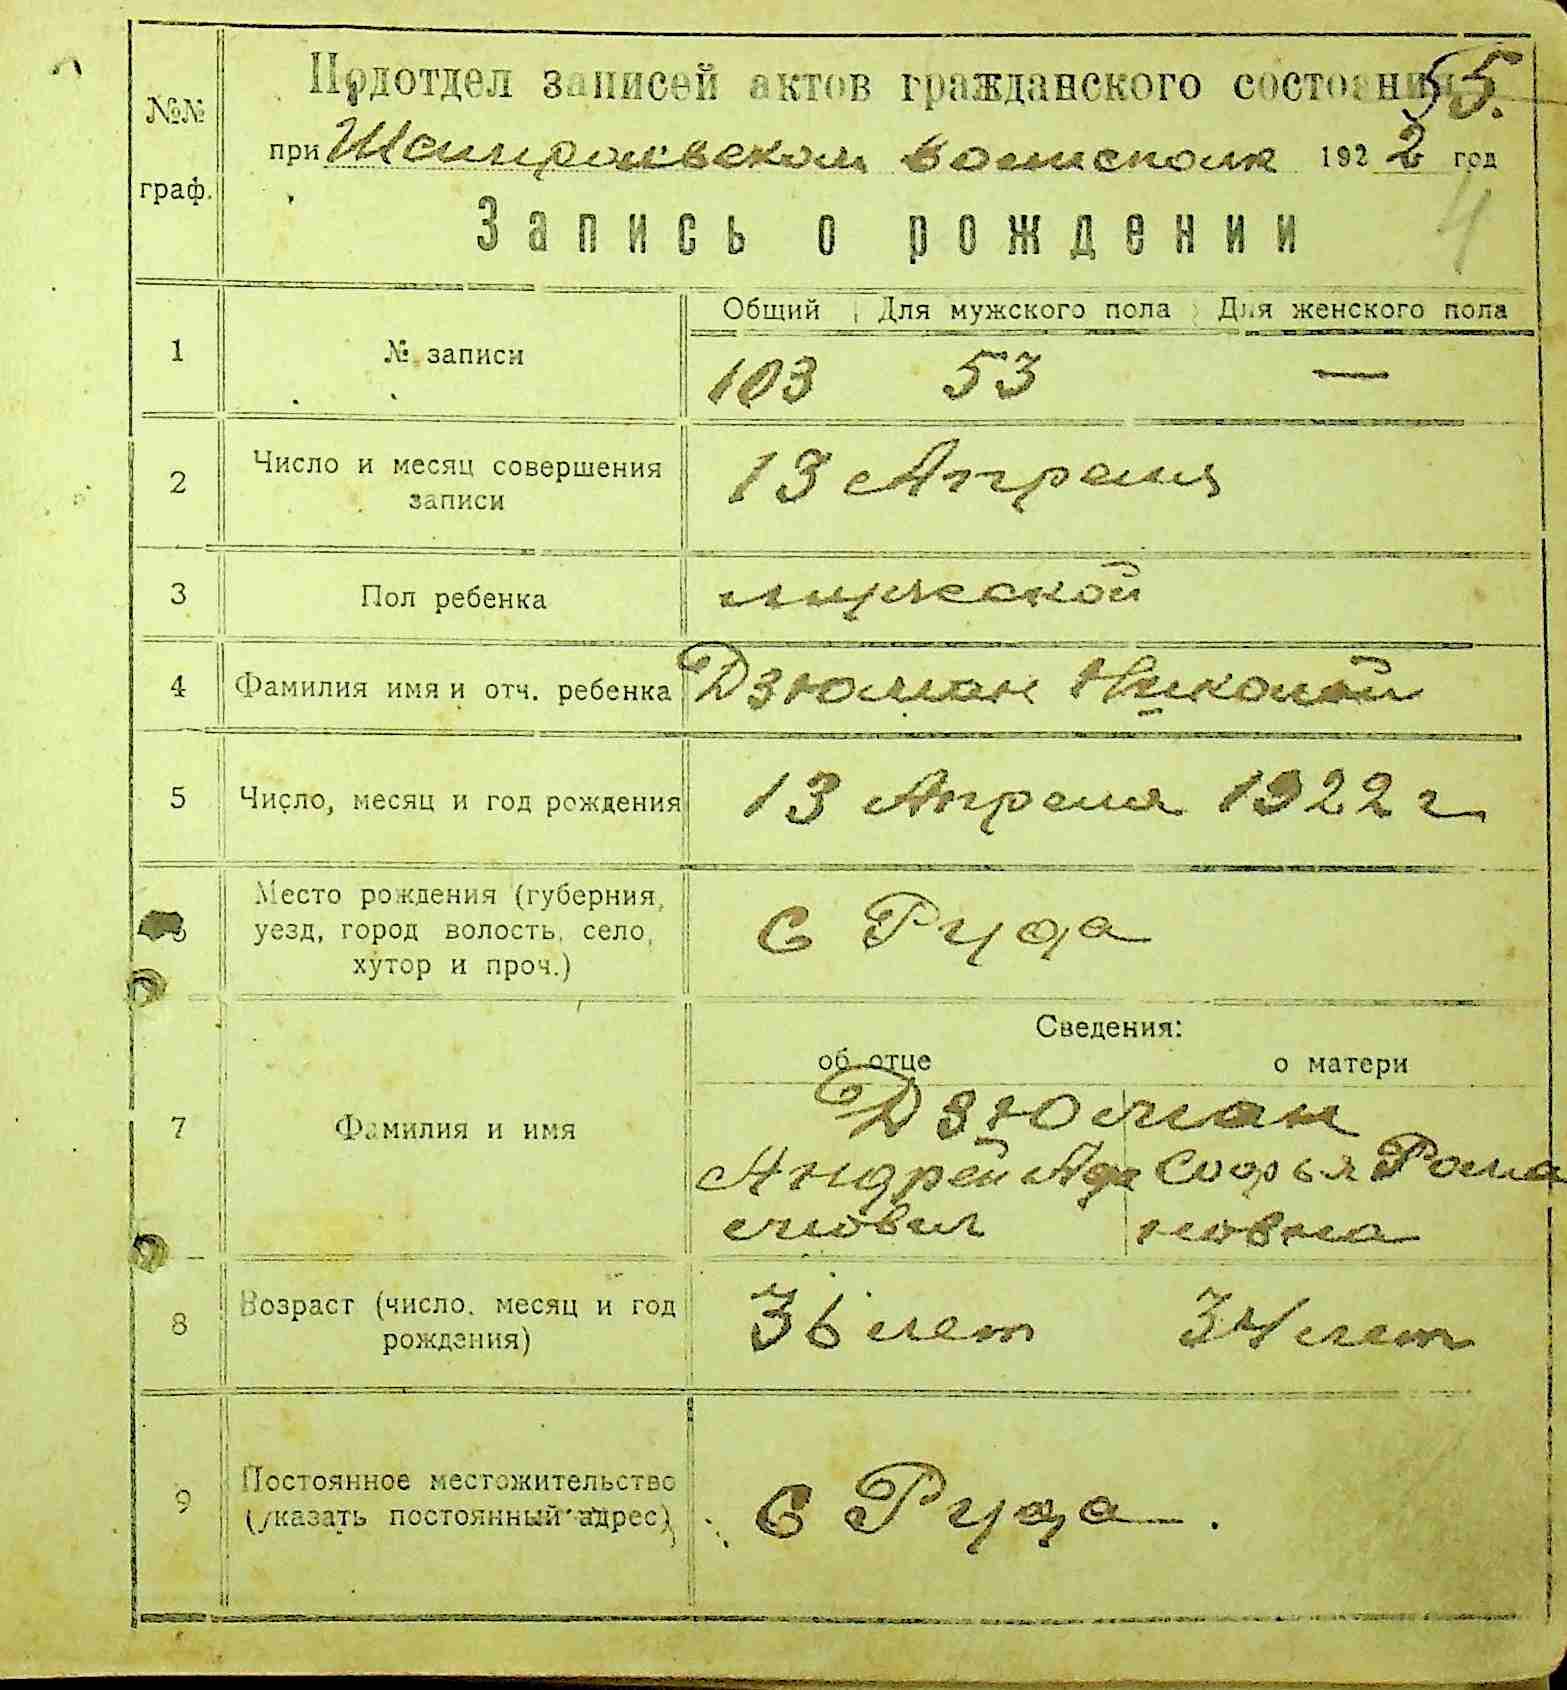 №№
граф.
Подотдел записей актов гражданского состояния
55.
при волисполк 1922 год
4
Запись о рождении
Общий Для мужского пола Для женского пола
1 № записи 103 53 —
2 Число и месяц совершения
записи
13 Апреля
3 Пол ребенка мужеской
4 Фамилия имя и отч. ребенка Дзюман Николай
5 Число, месяц и год рождения 13 Апреля 1922 г
6 Место рождения (губерния,
уезд, город волость, село,
хутор и проч.)
С Руда
Сведения:
об отце о матери
7 Фамилия и имя
Дзюман
Андрей Ада Софья Рома
мович новна
8 Возраст (число, месяц и год
рождения)
36 лет 34 лет
9 Постоянное местожительство
(указать постоянный адрес)
С Руда.